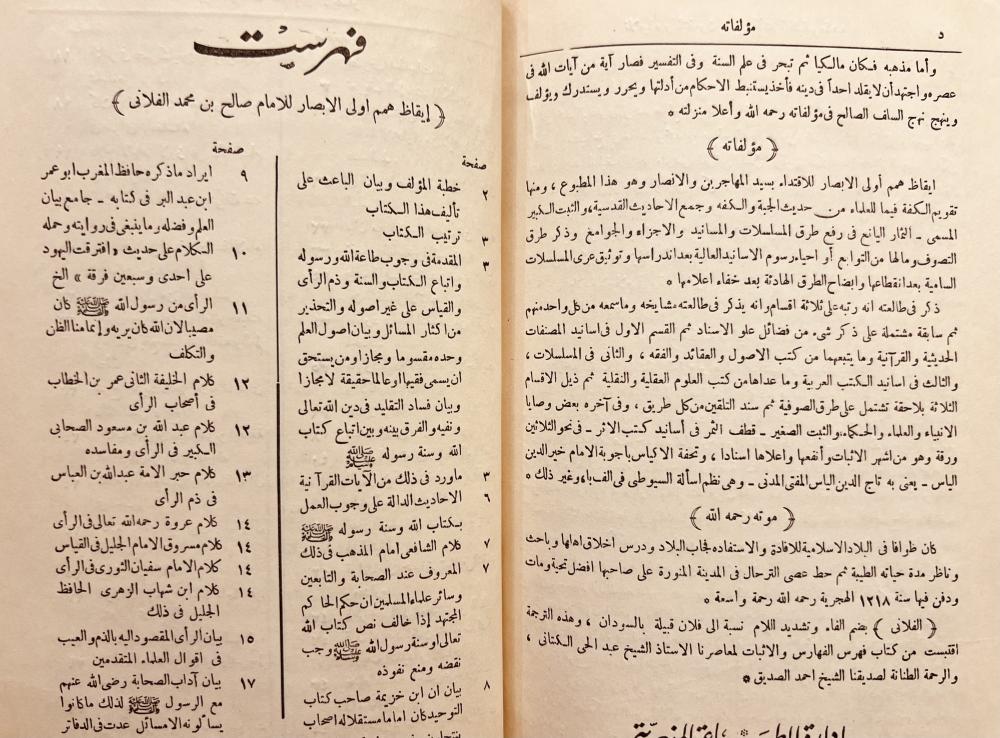 مؤلفاته
د
وأما مذهبه فكان مالكيا ثم تبحر فى علم السنة وفى التفسير فصار آية من آيات الله فى
عصره واجتهد أن لا يقلد احداً فى دينه فأخذ يستنبط الاحكام من أدلتها ويحرر ويستدرك ويؤلف
وينهج نهج السلف الصالح فى مؤلفاته رحمه الله وأعلا منزلته *
﴿ مؤلفاته ﴾
ايقاظ همم أولى الابصار للاقتداء بسيد المهاجرين والانصار وهو هذا المطبوع ، ومنها
تقويم الكفة فيما للعلماء من حديث الجبة والكفه وجمع الاحاديث القدسية، والثبت الكبير
المسمى ـ الثمار اليانع فى رفع طرق المسلسلات والمسانيد والاجزاء والجوامع وذكر طرق
التصوف ومالها من التوابع أو احياء رسوم الاسانيد العالية بعد اندراسها وتوثيق عرى المسلسلات
السامية بعد انقطاعها وايضاح الطرق الهادئة بعد خفاء اعلامها *
ذكر فى طالعته انه رتبه على ثلاثة اقسام وانه يذكر فى طالعته مشايخه وما سمعه من كل واحد منهم
ثم سابقة مشتملة على ذكر شىء من فضائل علو الاسناد ثم القسم الاول فى اسانيد المصنفات
الحديثية والقرآنية وما يتبعهما من كتب الاصول والعقائد والفقه ، والثانى فى المسلسلات ،
والثالث فى اسانيد الكتب العربية وما عداها من كتب العلوم العقلية والنقلية ثم ذيل الاقسام
الثلاثة بلاحقة تشتمل على طرق الصوفية ثم سند التلقين من كل طريق ، وفى آخره بعض وصايا
الانبياء والعلماء والحكماء، والثبت الصغير ـ قطف الثمر فى أسانيد كتب الاثر ـ فى نحو الثلاثين
ورقة وهو من اشهر الاثبات وأنفعها واعلاها اسنادا ، وتحفة الاكياس بأجوبة الامام خير الدين
الياس ـ يعنى به تاج الدين الياس المفتى المدنى ـ وهى نظم اسألة السيوطى فى الف باء، وغير ذلك *
﴿ موته رحمه الله ﴾
كان طوافا فى البلاد الاسلامية للافادة والاستفاده فجاب البلاد ودرس اخلاق اهلها وباحث
وناظر مدة حياته الطيبة ثم حط عصى الترحال فى المدينة المنورة على صاحبها افضل تحية ومات
ودفن فيها سنة ١٢١٨ الهجرية رحمه الله رحمة واسعة *
﴿ الفلانى ﴾ بضم الفاء وتشديد اللام نسبة الى فلان قبيلة بالسودان ، وهذه الترجمة
اقتبست من كتاب فهرس الفهارس والاثبات لمعاصرنا الاستاذ الشيخ عبد الحى الكتانى ،
والرحمة الطنانة لصديقنا الشيخ احمد الصديق *
فهرست
﴿ إيقاظ همم اولى الابصار للامام صالح بن محمد الفلانى ﴾
صفحة
٢ خطبة المؤلف وبيان الباعث على
تأليف هذا الكتاب
٣ ترتيب الكتاب
٣ المقدمة فى وجوب طاعة الله ورسوله
واتباع الكتاب والسنة وذم الرأى
والقياس على غير اصوله والتحذير
من اكثار المسائل وبيان اصول العلم
وحده مقسوما ومجازا ومن يستحق
ان يسمى فقيها او عالما حقيقة لا مجازا
وبيان فساد التقليد فى دين الله تعالى
ونفيه والفرق بينه وبين اتباع كتاب
الله وسنة رسوله ﷺ
٣ ماورد فى ذلك من الآيات القرآنية
٦ الاحاديث الدالة على وجوب العمل
بكتاب الله وسنة رسوله ﷺ
٧ كلام الشافعى امام المذهب فى ذلك
٧ المعروف عند الصحابة والتابعين
وسائر علماء المسلمين ان حكم الحاكم
المجتهد إذا خالف نص كتاب الله
تعالى او سنة رسول الله ﷺ وجب
نقضه ومنع نفوذه
٨ بيان ان ابن خزيمة صاحب كتاب
التوحيد كان اماما مستقلا له اصحاب
صفحة
٩ ايراد ما ذكره حافظ المغرب ابو عمر
ابن عبد البر فى كتابه ـ جامع بيان
العلم وفضله وما ينبغى فى روايته وحمله
١٠ الكلام على حديث « افترقت اليهود
على احدى وسبعين فرقة » الخ
١١ الرأى من رسول الله ﷺ كان
مصيبا لان الله كان يريه وإنما منا الظن
والتكلف
١٢ كلام الخليفة الثانى عمر بن الخطاب
فى أصحاب الرأى
١٢ كلام عبد الله بن مسعود الصحابى
الكبير فى الرأى ومفاسده
١٣ كلام حبر الامة عبدالله بن العباس
فى ذم الرأى
١٤ كلام عروة رحمه الله تعالى فى الرأى
١٤ كلام مسروق الامام الجليل فى القياس
١٤ كلام الامام سفيان الثورى فى الرأى
١٤ كلام ابن شهاب الزهرى الحافظ
الجليل فى ذلك
١٥ بيان الرأى المقصود اليه بالذم والعيب
فى اقوال العلماء المتقدمين
١٧ بيان آداب الصحابة رضى الله عنهم
مع الرسول ﷺ لذلك ما كانوا
يسألونه الا مسائل عدت فى الدفاتر